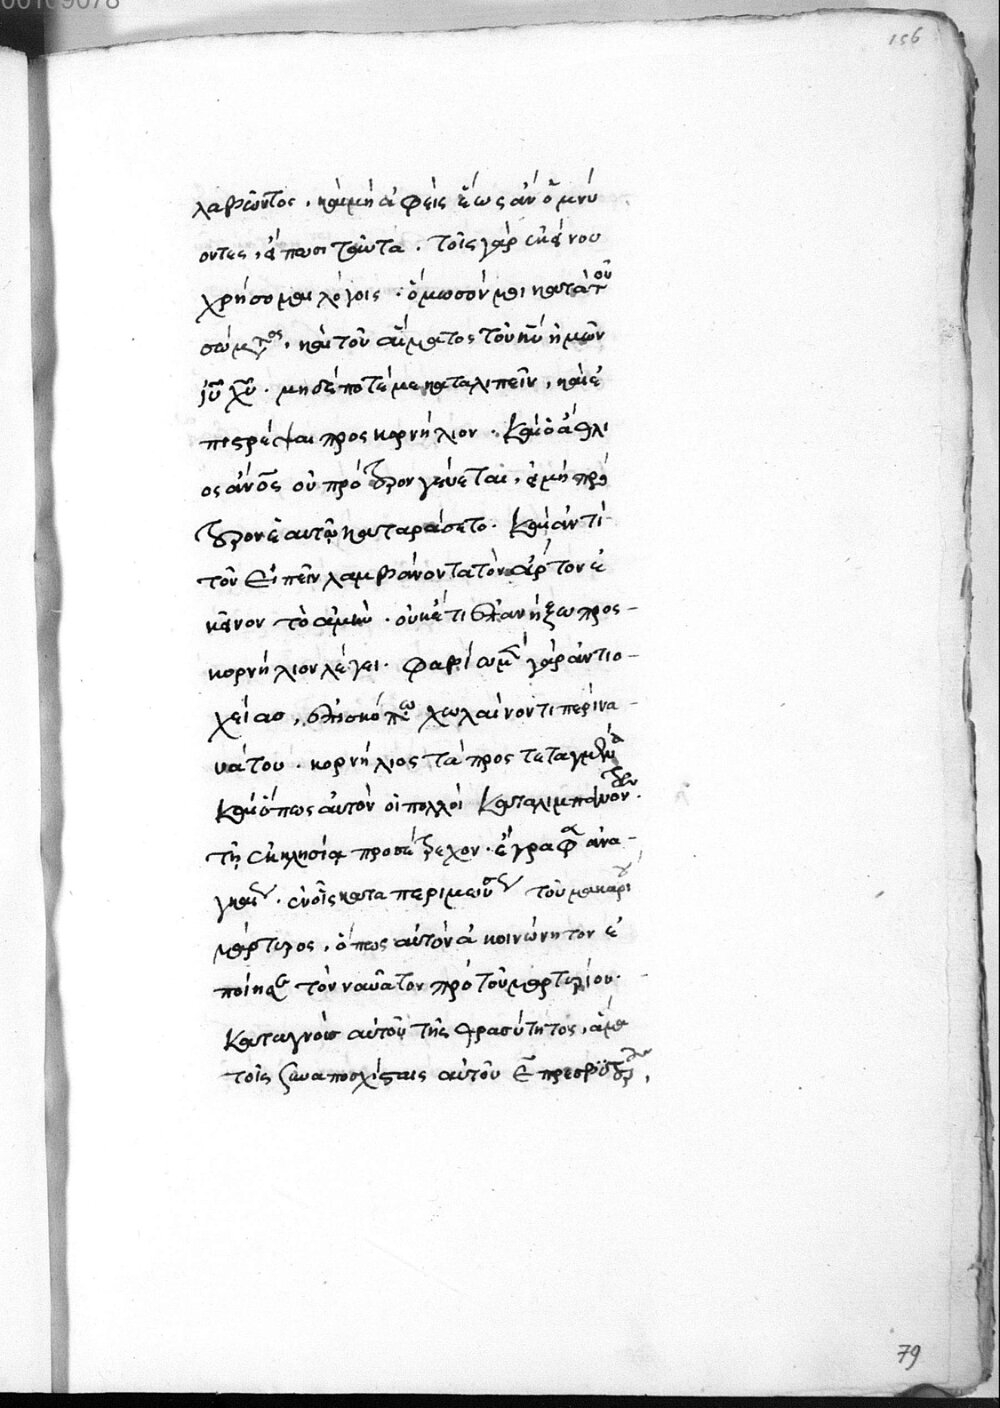 00109078
156
λαβόντος, καὶ μὴ ἀφεὶς ἕως ἂν ὀμνύ
οντες, εἴπωσι ταῦτα. τοῖς γὰρ ἐκείνου
χρήσομαι λόγοις. ὄμοσόν μοι κατὰ τοῦ
σώματος, καὶ τοῦ αἵματος τοῦ κυ ἡμῶν
ιυ χυ. μηδέποτέ με καταλιπεῖν, καὶ ἐ
πιστρέψαι προς κορνήλιον. Καὶ ὁ ἄθλι
ος ἄνος οὐ πρότερον γεύεται, εἰ μὴ πρό
τερον ἑαυτῷ καταράσετο. Καὶ ἀντὶ
τοῦ Εἰπεῖν λαμβάνοντα τὸν ἄρτον ἐ
κεῖνον τὸ ἀμὴν. οὐκέτι ἐπανήξω προς
κορνήλιον λέγει. Φαβίω μὲν γὰρ ἀντιο
χείας, ἐπισκόπω χωλαίνοντι περὶ να
υάτου. κορνήλιος τὰ προς τεταγμένα
Καὶ ὅπως αὐτὸν οἱ πολλοὶ Καταλιμπάνοντες.
τῇ ἐκκλησία προσέτρεχον. ἔγραφε ἀνα
γκαῖον. ἐν οἷς κατα περιμειοῦν τοῦ μακαρίου
μάρτυρος, ὅπως αὐτὸν ἀκοινώνητον ἐ
ποίησε τὸν ναυᾶτον πρὸ τοῦ μαρτυρίου.
Καταγνοὺς αὐτοῦ τῆς θρασύτητος, ἅμα
τοῖς συναποσχίσταις αὐτοῦ ε πρεσβυτέροις,
79